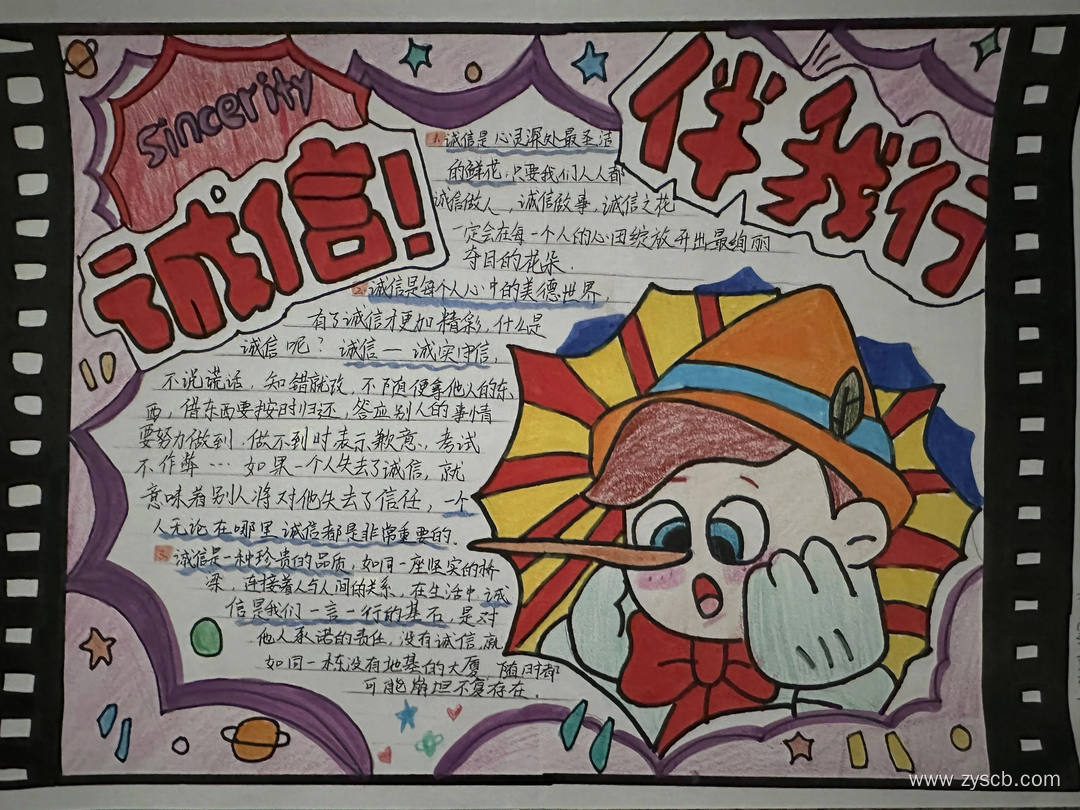 Sincerity
诚信!
伴我行
1.诚信是心灵深处最圣洁
的鲜花,只要我们人人都
诚信做人,诚信做事,诚信之花
一定会在每一个人的心田绽放开出最绚丽
夺目的花朵.
2.诚信是每个人心中的美德世界,
有了诚信才更加精彩,什么是
诚信呢?诚信一诚实守信,
不说谎话,知错就改,不随便拿他人的东
西,借东西要按时归还,答应别人的事情
要努力做到,做不到时表示歉意,考试
不作弊…如果一个人失去了诚信,就
意味着别人将对他失去了信任,一个
人无论在哪里诚信都是非常重要的.
3.诚信是一种珍贵的品质,如同一座坚实的桥
梁,连接着人与人间的关系,在生活中,诚
信是我们一言一行的基石,是对
他人承诺的责任,没有诚信,就
如同一栋没有地基的大厦,随时都
可能崩坦不复存在.
www.zyscb.com